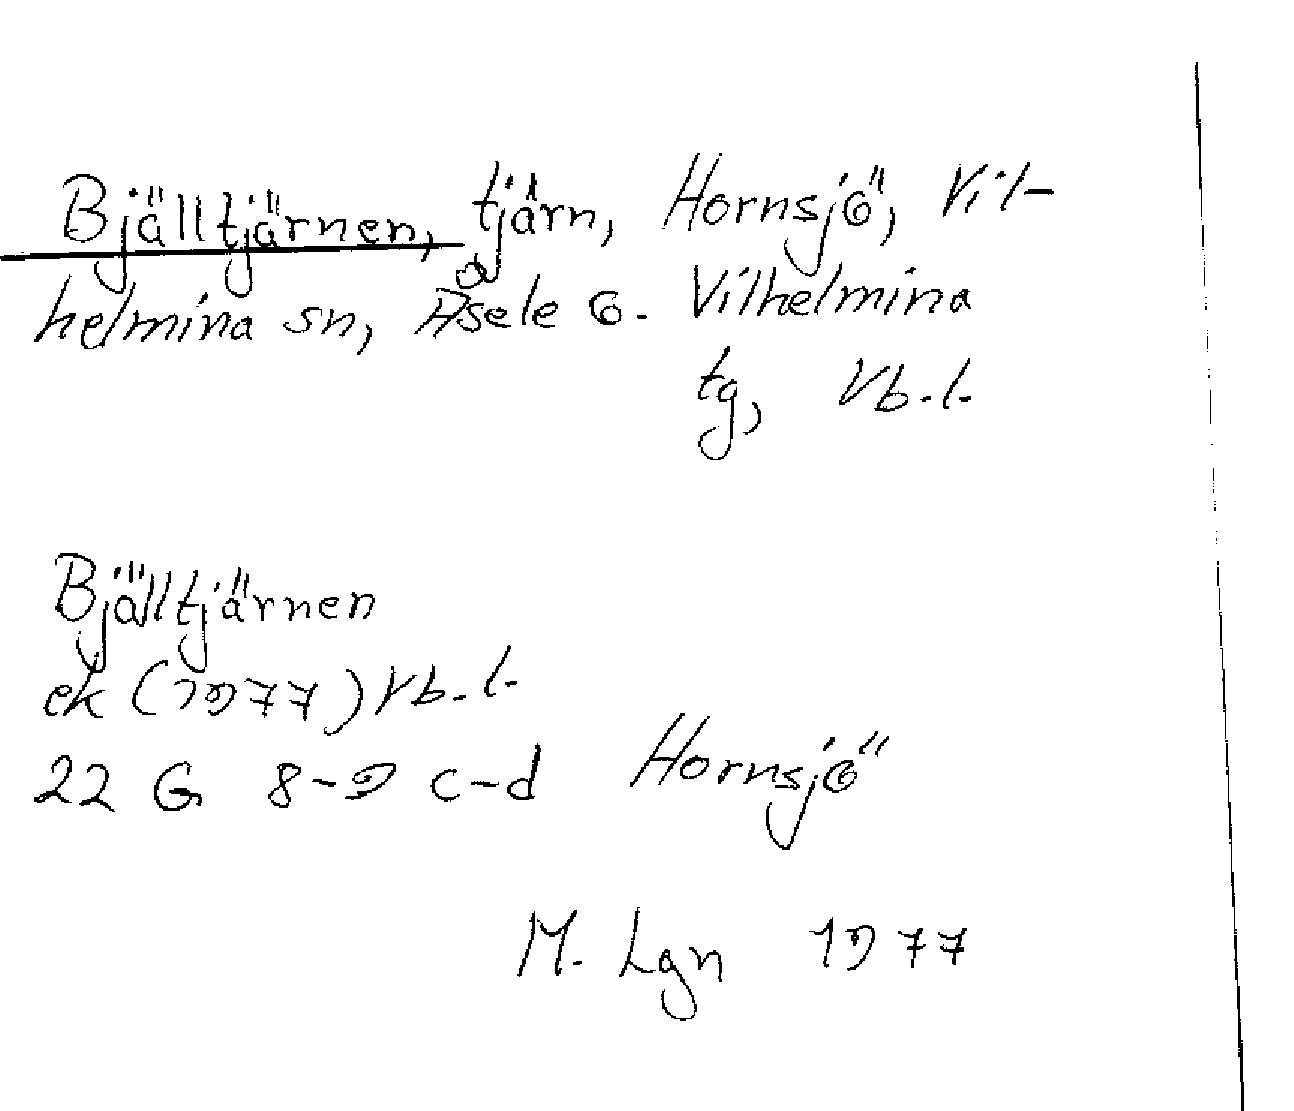 Bjälltjärnen, tjärn, Hornsjö, Vil-
helmina sn, Åsele lappm. Vilhelmina
tg, Vb. l.
Bjälltjärnen
ek (1977) Vb. l.
22 G 8-9 c-d Hornsjö
M. Lgn 1977